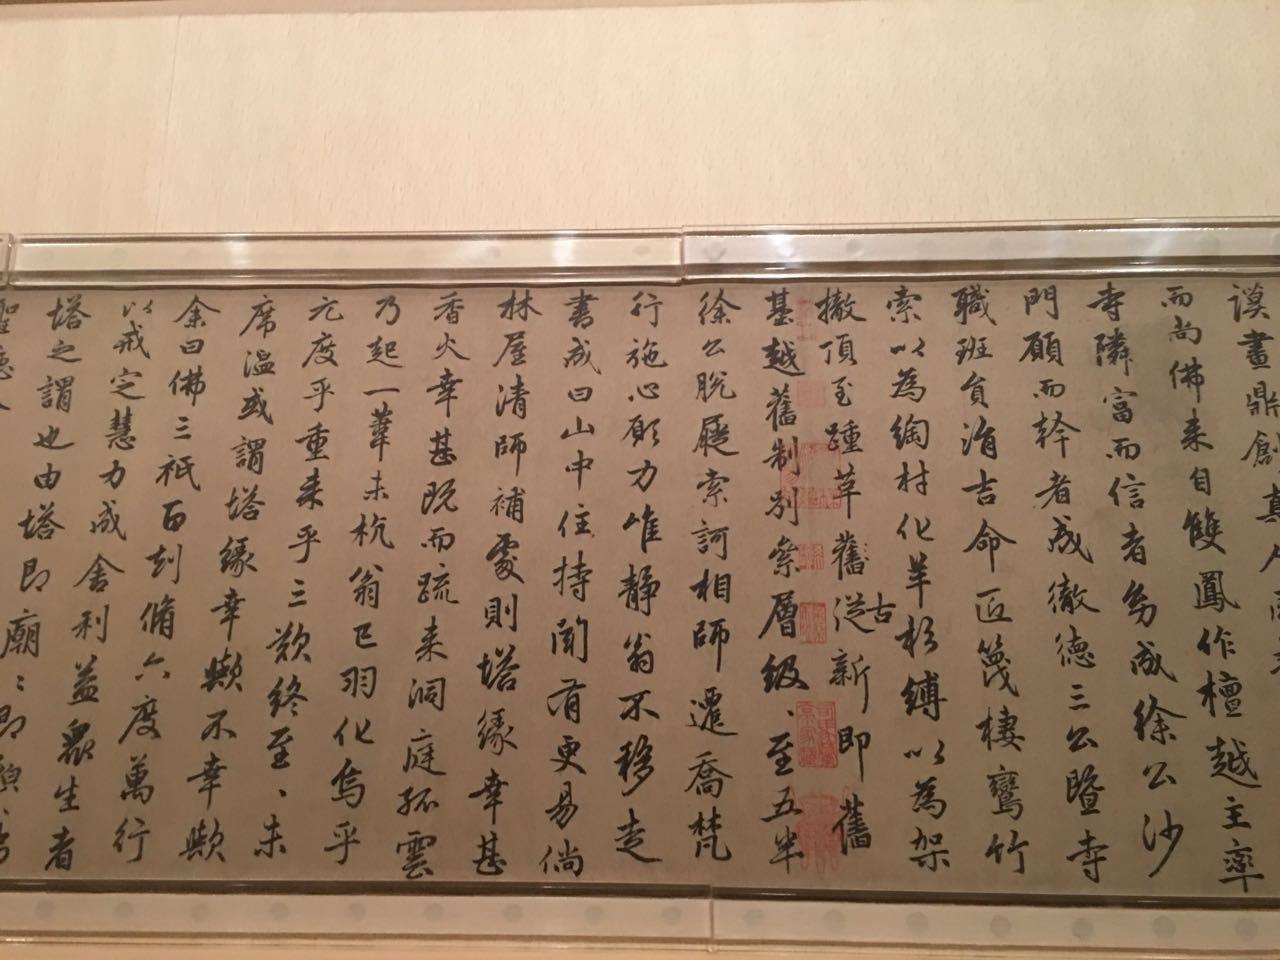 謨畫鼎創
而尚佛来自雙鳳作檀越主率
寺隣富而信者為成徐公沙
門願而幹者成徹德三公暨寺
職班負涓吉命匠篾棲鸞竹
索以為綯村化羊杉縛以為架
古
撤頂至踵革舊從新即舊
基越舊制別柰層級、至五半
徐公脱屣索訶相師遷喬梵
行施心願力唯靜翁不移走
書成曰山中住持闻有更易倘
林屋清師補處則塔緣幸甚
香火幸甚既而疏来洞庭孤雲
乃起一葦未杭翁已羽化烏乎
元度乎重来乎三歎終至、未
席温或謂塔緣幸歟不幸歟
余曰佛三祇百劫脩六度萬行
以戒定慧力成舍利益眾生者
塔之謂也由塔即廟ミ即
聖應